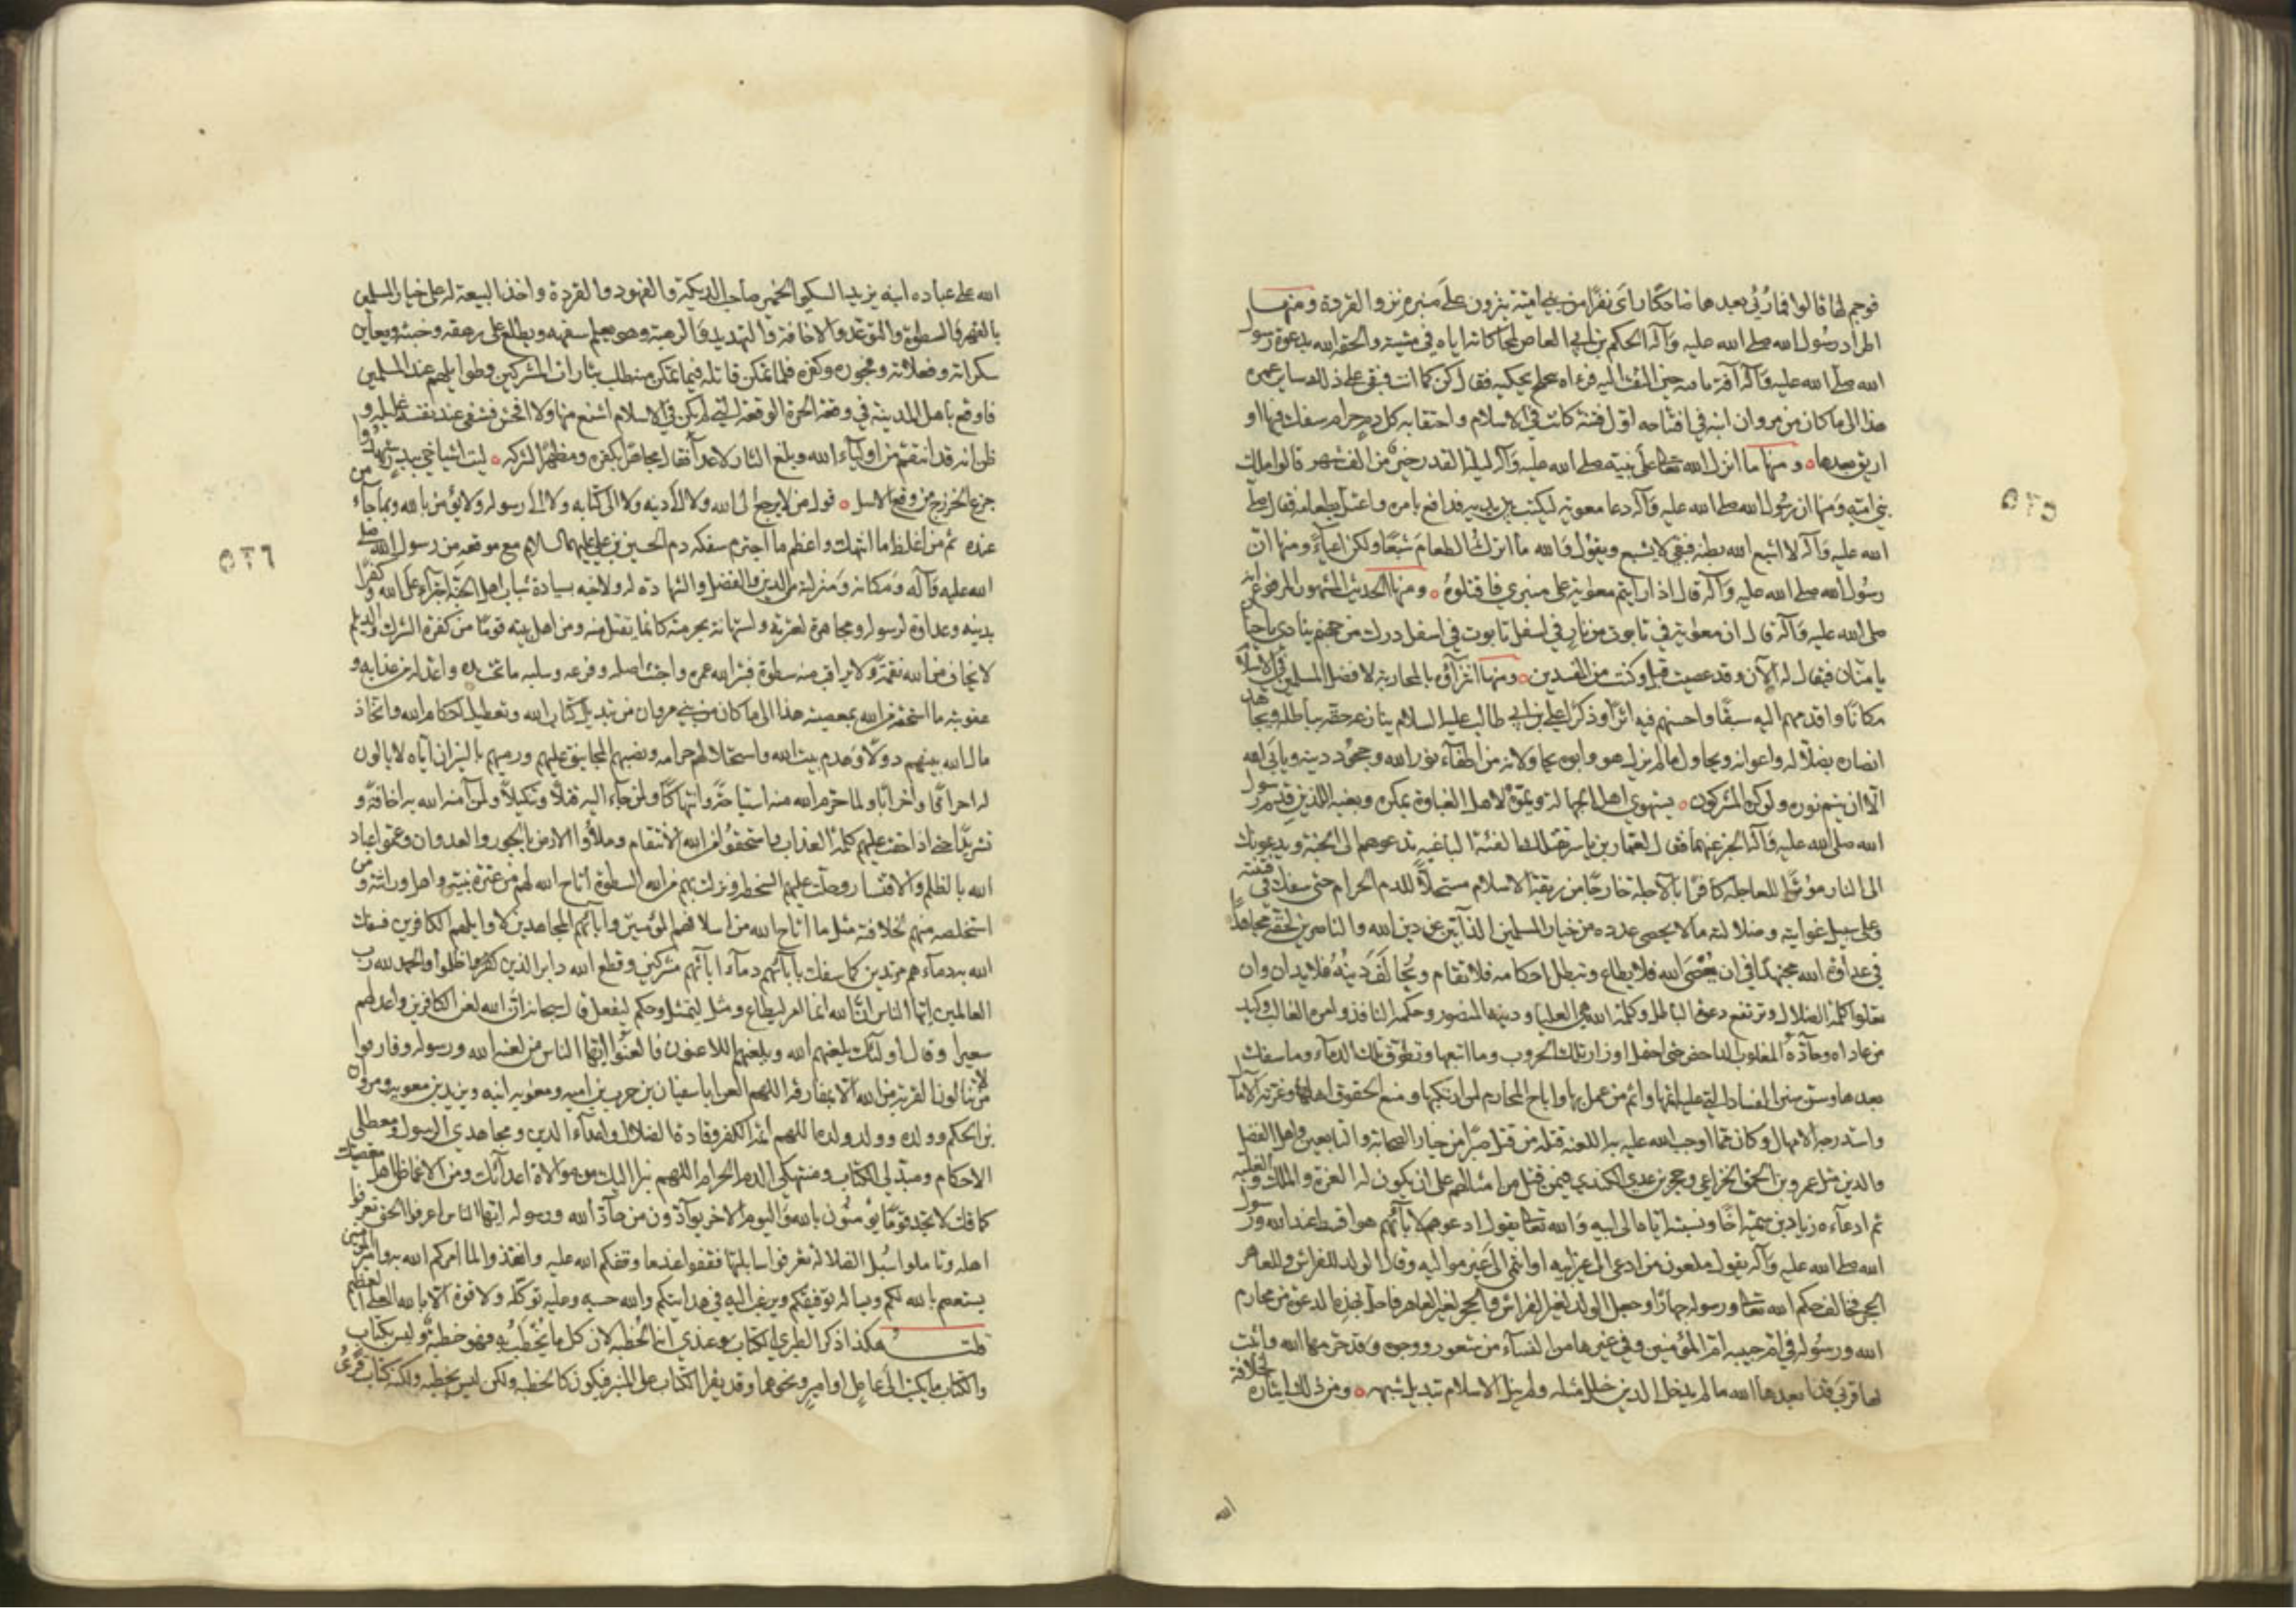 فوجم لها قالوا فما رُئي بعدها ضاحكا رأى نفرًا من بني امية ينزون على منبره نزو القردة ومنها
طرد رسول الله صلى الله عليه وآله الحكم بن ابي العاص لمحاكاته اياه في مشيته والحقه الله بدعوة رسول
الله صلى الله عليه وآله آفة باقية حين التفت اليه فرءاه يحكيه فقال كن كما انت فبقى على ذلك ساير عمره
هذا الى ما كان من مروان ابنه في افتتاحه اول فتنة كانت في الاسلام واحتقابه كل دم حرام سفك فيها او
اريق بعدها ه ومنها ما انزل الله تعالى على نبيه صلى الله عليه وآله ليلة القدر خير من الف شهر قالوا ملك
بني امية ومنها ان رسول الله صلى الله عليه وآله دعا معوية ليكتب بين يديه فدافع بامره واعتل بطعامه فقال صلى
الله عليه وآله لا اشبع الله بطنه فبقي لا يشبع ويقول والله ما اترك الطعام شبعًا ولكن اعياءً ومنها ان
رسول الله صلى الله عليه وآله قال اذا رايتم معوية على منبري فاقتلوه ه ومنها الحديث المشهور المرفوع انه
صلى الله عليه وآله قال ان معوية في تابوت من نار في اسفل تابوت في اسفل درك من جهنم ينادي يا حنان
يا منان فيقال له الآن وقد عصيت قبل وكنت من المفسدين ه ومنها انتزاؤه بالمحاربة لافضل المسلمين في الاسلام
مكانًا واقدمهم اليه سبقًا واحسنهم فيه اثرًا وذكرًا علي بن ابي طالب عليه السلام ينازعه حقه بباطله ويجاهد
انصاره بضلاله واعوانه ويحاول ما لم يزل هو وابوه يحاولانه من اطفاء نور الله وجحود دينه ويابى الله
الا ان يتم نوره ولو كره المشركون ه يستهوي اهل الجهالة ويموه لاهل الغباوة بمكره وبغيه الذين قدم رسول
الله صلى الله عليه وآله الخبر عنهما فقال لعمار بن ياسر تقتلك الفئة الباغية تدعوهم الى الجنة ويدعونك
الى النار مؤثرًا للعاجلة كافرًا بالآجلة خارجًا من ربقة الاسلام مستحلًا للدم الحرام حتى سفك في فتنته
وعلى سبيل غوايته وضلالته ما لا يحصى عدده من خيار المسلمين الذابين عن دين الله والناصرين لحقه مجاهدًا
في عداوة الله مجتهدًا في ان يُعصى الله فلا يطاع وتبطل احكامه فلا تقام ويُخالَف دينُه فلا يدان وان
تعلوا كلمة الضلال وترتفع دعوة الباطل وكلمة الله هي العليا ودينه المنصور وحكمه النافذ وامره الغالب وكيد
من عاداه وحادّه المغلوب الداحض حتى احتمل اوزار تلك الحروب وما اتبعها وتطوق تلك الدماء وما سفك
بعدها وسن سنن الفساد التي عليه اثمها واثم من عمل بها واباح المحارم لمن ارتكبها ومنع الحقوق اهلها وغرته الآمال
واستدرجه الامهال وكان مما اوجب الله عليه به اللعنة قتله من قتل صبرًا من خيار الصحابة والتابعين واهل الفضل
والدين مثل عمرو بن الحمق الخزاعي وحجر بن عدي الكندي فيمن قتل من امثالهم على ان يكون له العزة والملك والغلبة
ثم ادعاءه زياد بن سمية اخًا ونسبته اياه الى ابيه والله تعالى يقول ادعوهم لآبائهم هو اقسط عند الله ورسول
الله صلى الله عليه وآله يقول ملعون من ادعى الى غير ابيه او انتمى الى غير مواليه وقال الولد للفراش وللعاهر
الحجر فخالف حكم الله تعالى ورسوله جهارًا وجعل الولد لغير الفراش والحجر لغير العاهر فاحل بهذه الدعوة من محارم
الله ورسوله في ام حبيبه ام المؤمنين وفي غيرها من النساء من شعور ووجوه وقد حرمها الله واثبت
بها قربى قد باعدها الله ما لم يدخل الدين خلل مثله ولم ينل الاسلام تبديل يشبهه ه ومن ذلك ايثاره لخلافة
الله
٥٢٥
الله على عباده ابنه يزيد السكير الخمير صاحب الديكة والفهود والقردة واخذ البيعة له على خيار المسلمين
بالقهر والسطوة والتوعد والاخافة والتهديد والرهبة وهو يعلم سفهه ويطلع على رهقه وخبثه ويعاين
سكراته وفعلاته وفجوره وكفره فلما تمكن قاتله فيما تمكن منه طلب بثارات المشركين وطوايلهم عند المسلمين
فاوقع باهل المدينة في وقعة الحرة الوقعة التي لم يكن في الاسلام اشنع منها ولا افحش فشفى عند نفسه غليله و
ظن انه قد انتقم من اولياء الله وبلغ الثار لاعداء الله فقال مجاهرًا بكفره ومظهرًا لشركه ه ليت اشياخي ببدر شهدوا
جزع الخزرج من وقع الاسل ه قول من لا يرجع الى الله ولا الى دينه ولا الى كتابه ولا الى رسوله ولا يؤمن بالله وبما جاء من
عنده ثم من اغلظ ما انتهك واعظم ما اجترم سفكه دم الحسين بن علي عليهما السلام مع موقعه من رسول الله صلى
الله عليه وآله ومكانه ومنزلته من الدين والفضل والشهادة له ولاخيه بسيادة شباب اهل الجنة اجتراء على الله وكفرًا
بدينه وعداوة لرسوله ومجاهرة لعترته واستهانة بحرمته كانما يقتل منه ومن اهل بيته قومًا من كفرة الترك والديلم
لا يخاف من الله نقمة ولا يراقب منه سطوة فبتر الله عمره واجتث اصله وفرعه وسلبه ما تحت يده واعد له من عذابه و
عقوبته ما استحقه من الله بمعصيته هذا الى ما كان من بني مروان من تبديل كتاب الله وتعطيل احكام الله واتخاذ
مال الله بينهم دولًا وهدم بيت الله واستحلالهم حرامه ونصبهم المجانيق عليهم ورميهم بالنيران اياه لا يالون
له احراقًا واخرابًا ولما حرم الله منه استباحة وانتهاكًا ولمن لجأ اليه قتلًا وتنكيلًا ولمن آمنه الله به اخافة و
تشريدًا حتى اذا حقت عليهم كلمة العذاب واستحقوا من الله الانتقام وملأوا الارض بالجور والعدوان وعموا عباد
الله بالظلم والاقتسار وحلت عليهم السخطة ونزلت بهم من الله السطوة اتاح الله لهم من عترة نبيه واهل وراثته ومن
استخلصه منهم لخلافته مثل ما اتاح الله من اسلافهم المؤمنين وآبائهم المجاهدين لاوايلهم الكافرين فسفك
الله به دماءهم مرتدين كما سفك بآبائهم دماء آبائهم مشركين وقطع الله دابر الذين ظلموا والحمد لله رب
العالمين ايها الناس ان الله انما امر ليطاع ومثل ليتمثل وحكم ليفعل قال سبحانه ان الله لعن الكافرين واعد لهم
سعيرا وقال اولئك يلعنهم الله ويلعنهم اللاعنون فالعنوا ايها الناس من لعنه الله ورسوله وفارقوا
من لا تنالون القربة من الله الا بمفارقته اللهم العن ابا سفيان بن حرب بن امية ومعوية ابنه ويزيد بن معوية ومروان
بن الحكم وولده وولد ولده اللهم العن ائمة الكفر وقادة الضلال واعداء الدين ومجاهدي الرسول ومعطلي
الاحكام ومبدلي الكتاب ومنتهكي الدم الحرام اللهم نبرا اليك من موالاة اعدائك ومن الاغماض لاهل معصيتك
كما قلت لا تجد قومًا يؤمنون بالله واليوم الآخر يوادون من حاد الله ورسوله ايها الناس اعرفوا الحق تعرفوا
اهله وتاملوا سبل الضلالة تعرفوا سابلها فقفوا عندما وقفكم الله عليه وانفذوا لما امركم الله به وامير المؤمنين
يستعصم بالله لكم ويساله توفيقكم ويرغب اليه في هدايتكم والله حسبه وعليه توكله ولا قوة الا بالله العلي العظيم
قلت هكذا ذكر الطبري الكتاب وعندي انه الخطبة لان كل ما يخطب به فهو خطبة وليس بكتاب
والكتاب ما يكتب الى عامل او امير ونحوهما وقد يقرأ الكتاب على المنبر فيكون كالخطبة ولكن ليس بخطبة ولكنه كتاب قرئ
٥٢٦